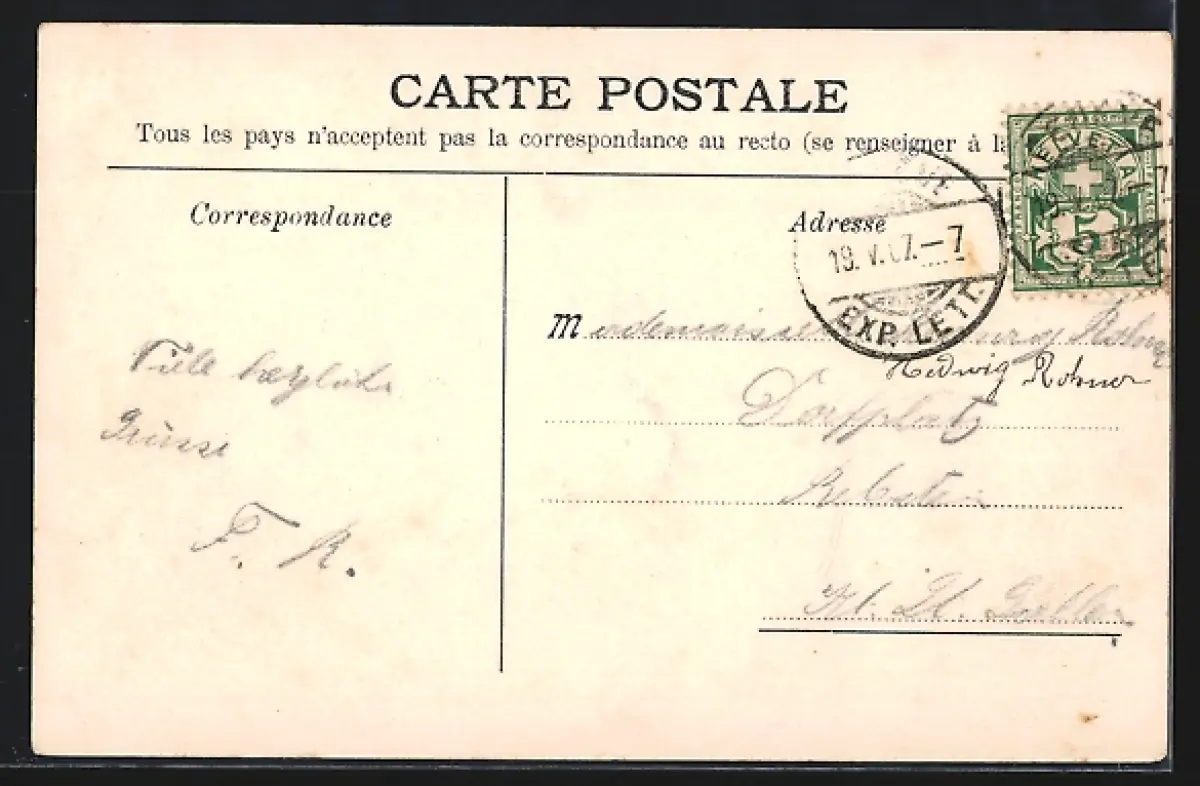 CARTE POSTALE
Tous les pays n'acceptent pas la correspondance au recto (se renseigner à la
Correspondance
Adresse
HELVETIA
5
19. V. 07. — 7
EXP. LETT.
Viele herzliche
Grüsse
F. R.
Mademoiselle
Hedwig Rohner
Dorfplatz
Rebstein
Kt. St. Gallen